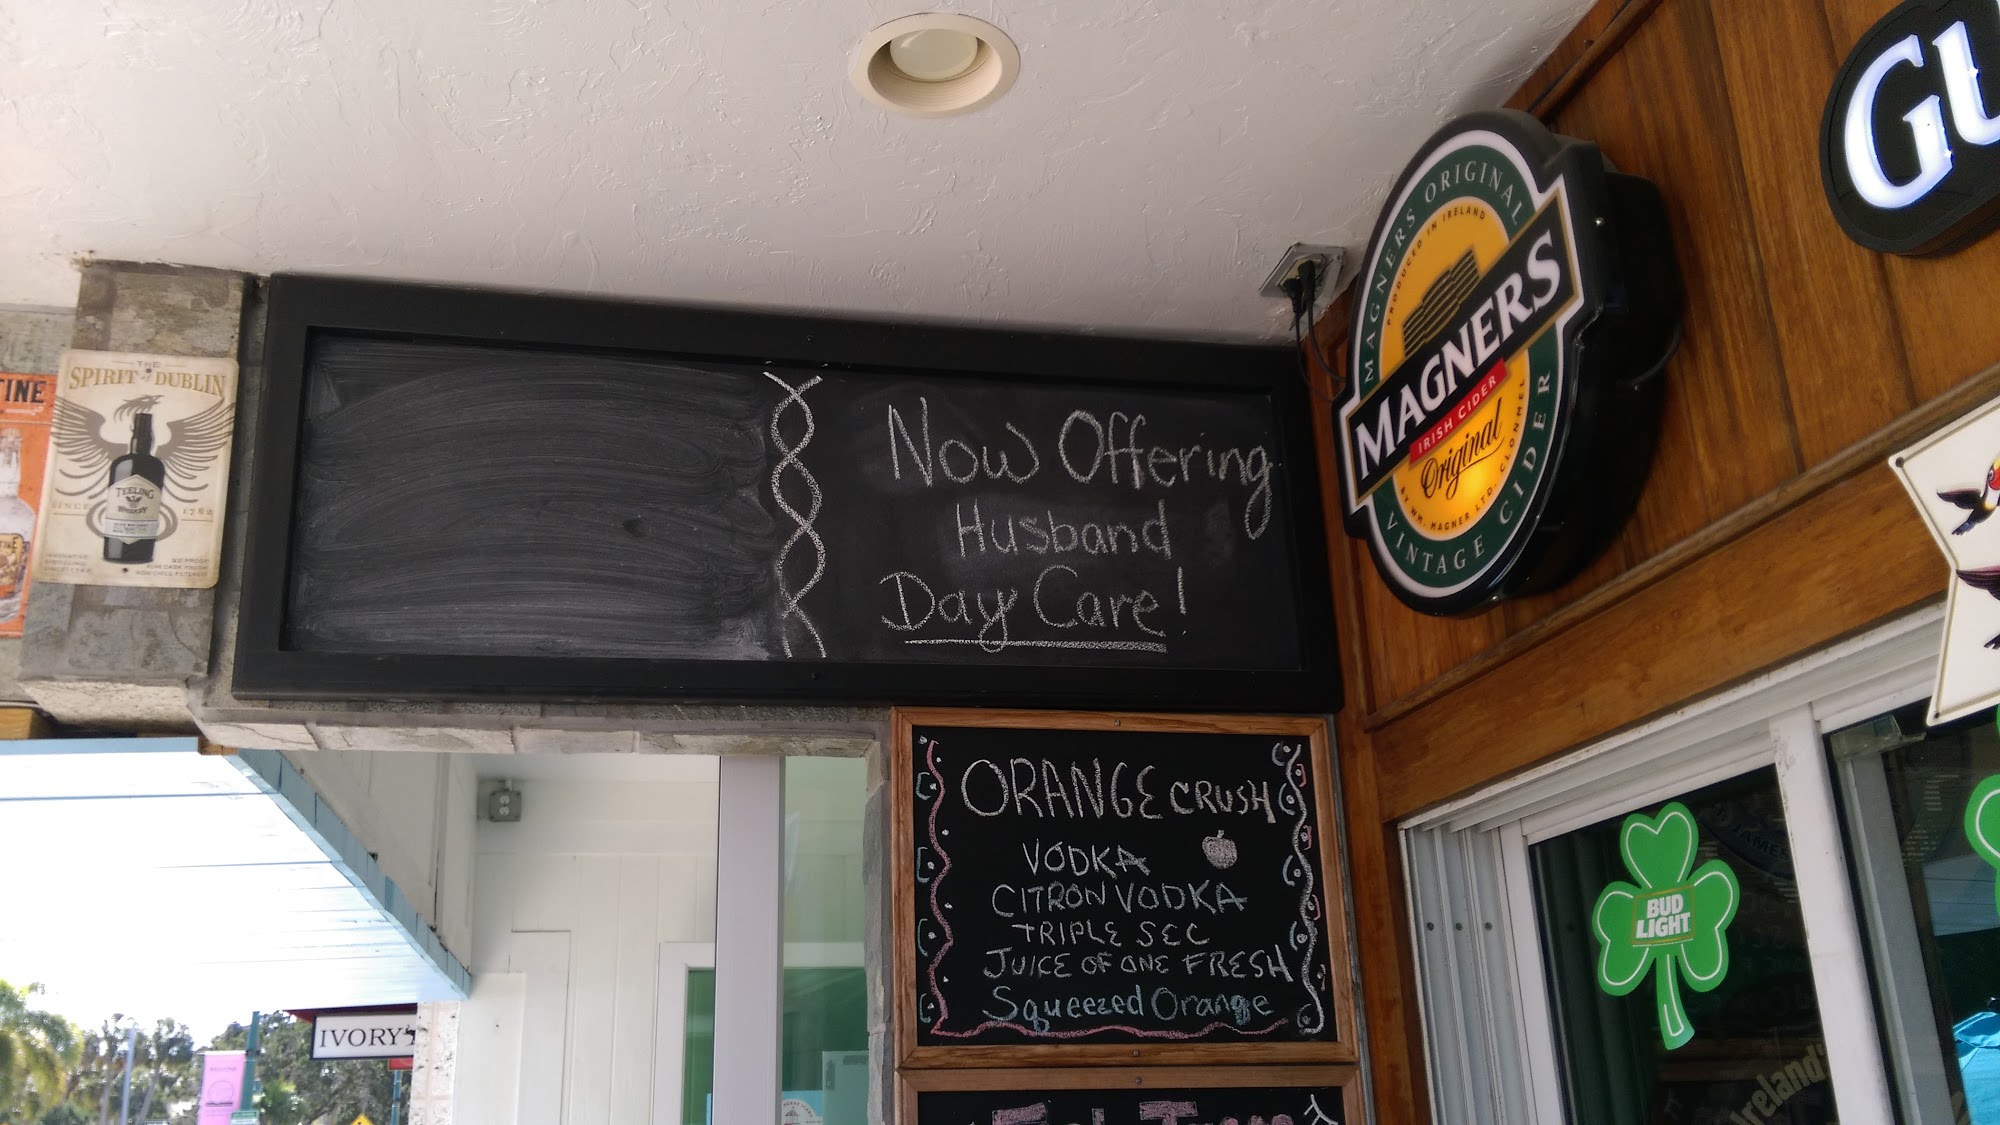 THE
SPIRIT of DUBLIN
TEELING
WHISKEY
SINCE 1782
TINE
Now Offering
Husband
Day Care!
ORANGE CRUSH
VODKA
CITRON VODKA
TRIPLE SEC
JUICE OF ONE FRESH
Squeezed Orange
MAGNERS ORIGINAL
PRODUCED IN IRELAND
MAGNERS
IRISH CIDER
Original
BY WM. MAGNER LTD. CLONMEL
VINTAGE CIDER
GU
BUD
LIGHT
Ireland
IVORY'